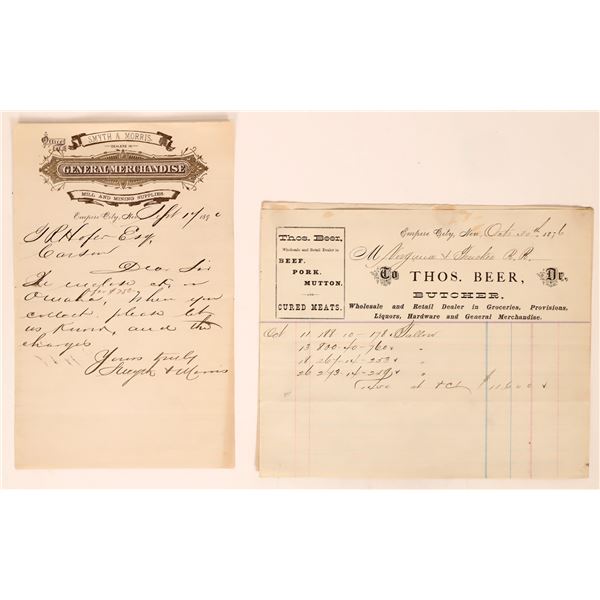 Office of
SMYTH & MORRIS,
DEALERS IN
GENERAL MERCHANDISE
MILL AND MINING SUPPLIES.
Empire City, Nev. Sept 17 189
Hofer Esq,
Carson
Dear Sir
We enclose ck on
Omaha, When you
collect, please let
us know, and the
charges
Yours truly
Smyth & Morris
Empire City, Nev. Oct. 30th 1876
M Virginia & Truckee R.R.
To THOS. BEER, Dr.
BUTCHER.
Wholesale and Retail Dealer in Groceries, Provisions,
Liquors, Hardware and General Merchandise.
Thos. Beer,
Wholesale and Retail Dealer in
BEEF,
PORK,
MUTTON,
CURED MEATS.
Oct 11 188-10-178 Tallow
13 800-40-760 "
18 267-14-253 "
26 273-14-259 "
1450 at 8 C $ 116 00